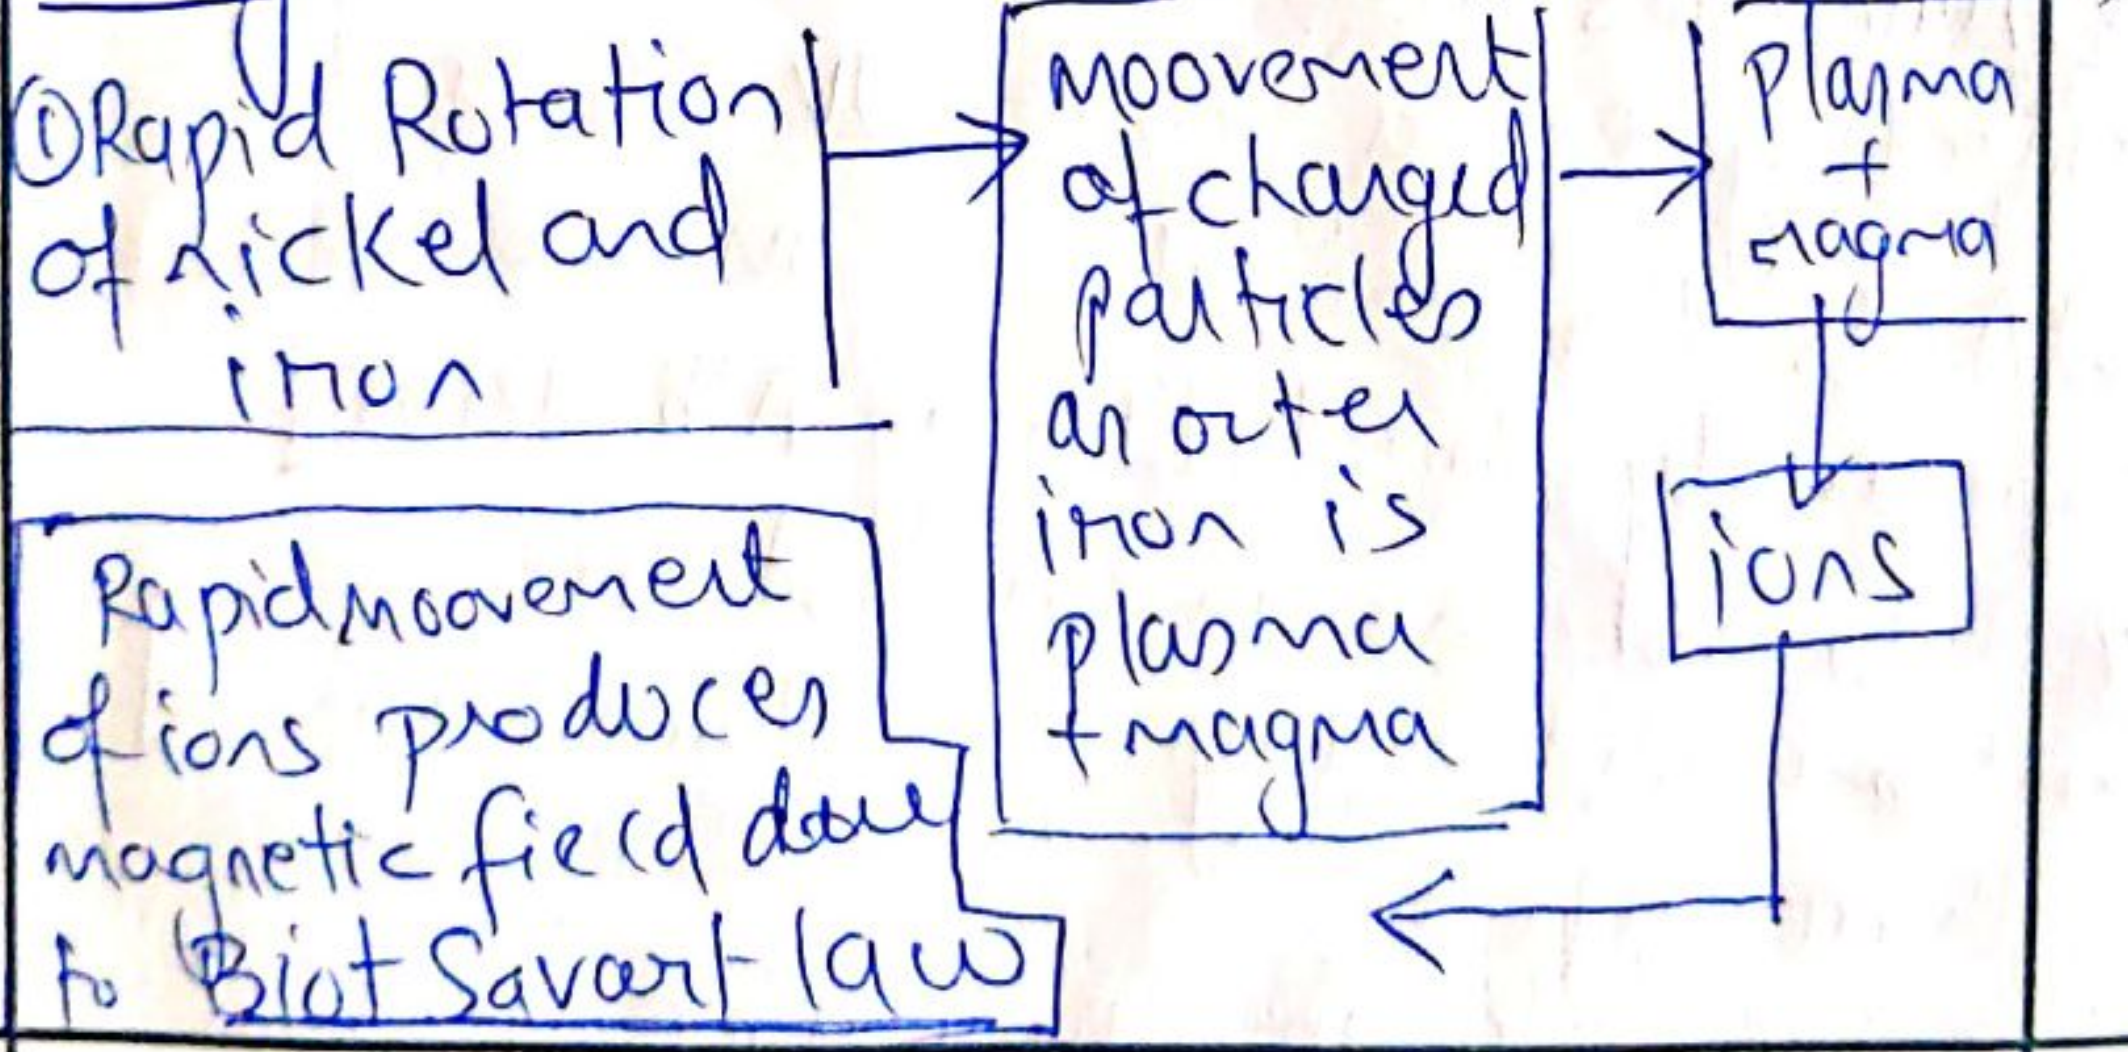 ①Rapid Rotation
of nickel and
iron
moovement
of charged
particles
as outer
iron is
plasma
+magma
plasma
+
magma
ions
Rapid moovement
of ions produces
magnetic field
to Biot Savart law